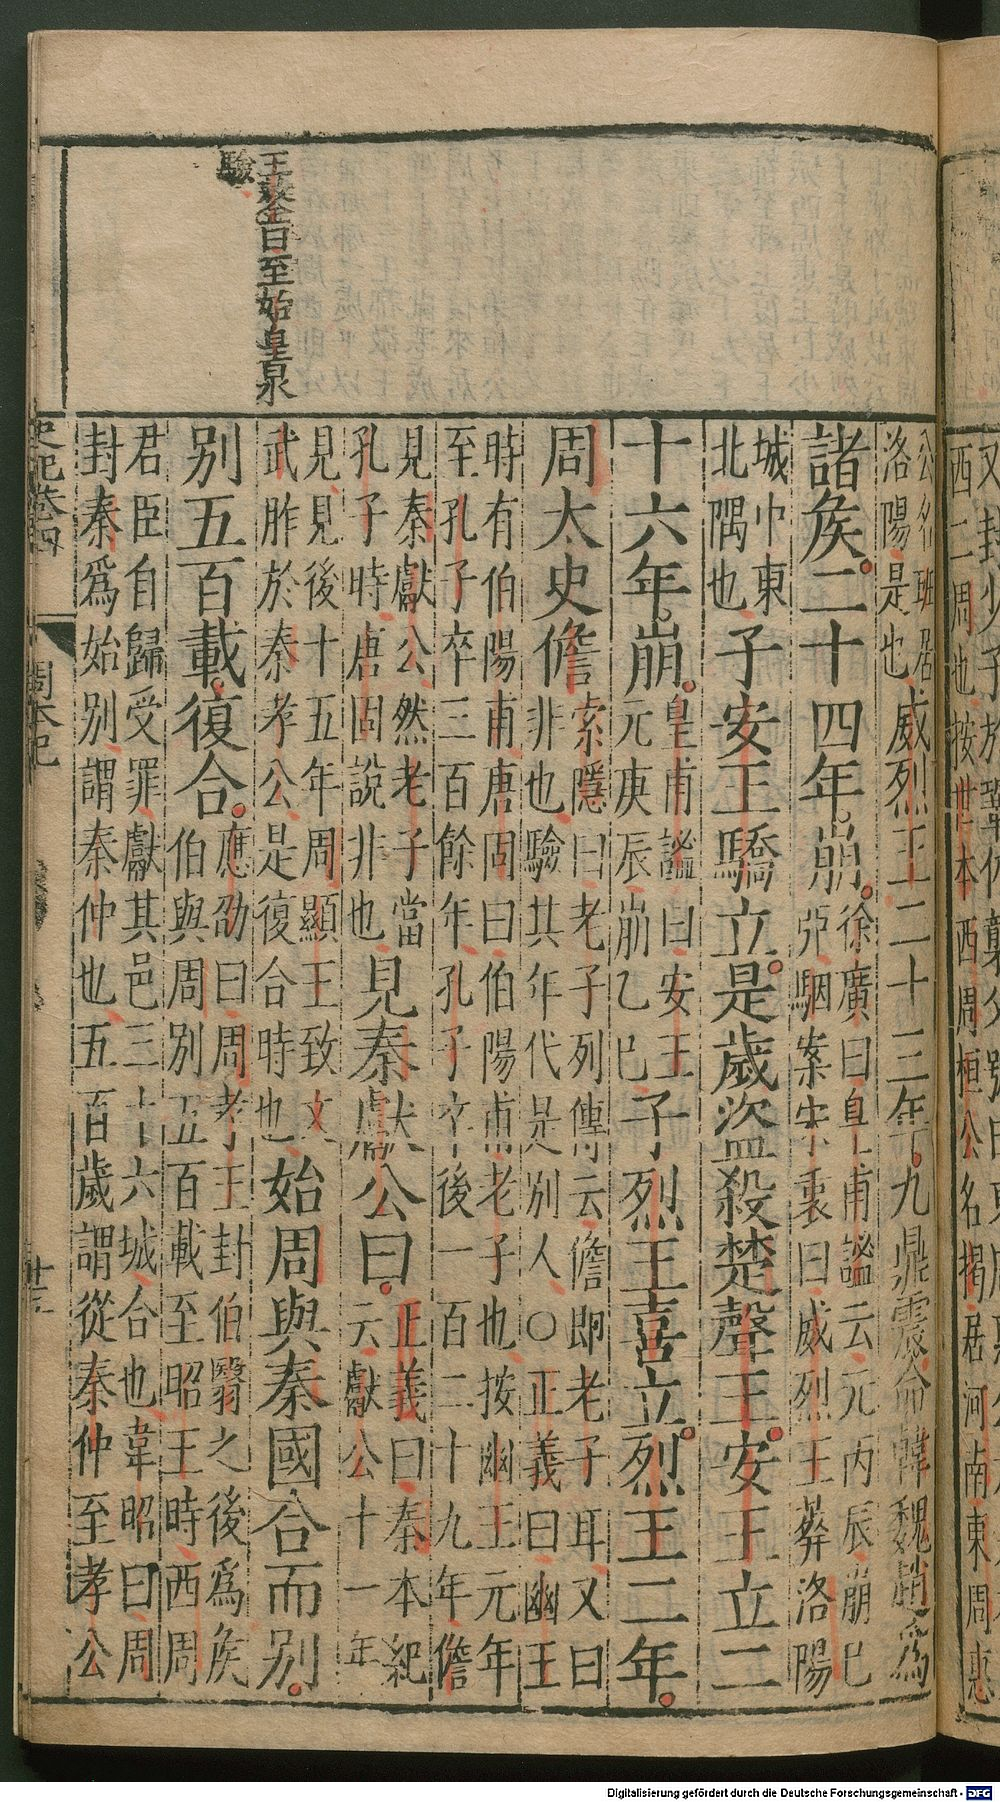 王鏊曰至始皇泉
驗
公名班居
洛陽是也
威烈王二十三年九鼎震命韓魏趙爲
諸矦二十四年崩
徐廣曰皇甫謐云元丙辰崩巳
亞駰案宋衷曰威烈王葬洛陽
城中東
北隅也
子安王驕立是歲盜殺楚聲王安王立二
十六年崩
皇甫謐曰安王
元庚辰崩乙巳
子烈王喜立烈王二年
周太史儋
索隱曰老子列傳云儋即老子耳又曰
非也驗其年代是別人○正義曰幽王
時有伯陽甫唐固曰伯陽甫老子也按幽王元年
至孔子卒三百餘年孔子卒後一百二十九年儋
見秦獻公然老子當
孔子時唐固說非也
見秦獻公曰
正義曰秦本紀
云獻公十一年
見見後十五年周顯王致文
武胙於秦孝公是復合時也
始周與秦國合而別
別五百載復合
應劭曰周孝王封伯翳之後爲矦
伯與周別五百載至昭王時西周
君臣自歸受罪獻其邑三十六城合也韋昭曰周
封秦爲始別謂秦仲也五百歲謂從秦仲至孝公
史記卷四
周本紀
廿三
又封少子於鞏仍襲父號曰東周
西二周也按世本西周桓公名揭居河南東周惠
Digitalisierung gefördert durch die Deutsche Forschungsgemeinschaft - DFG